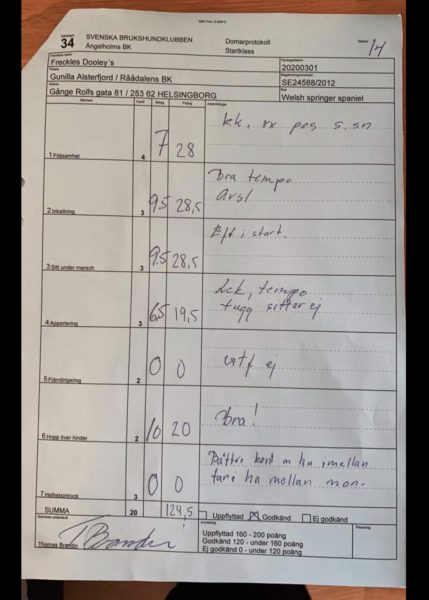 34
SVENSKA BRUKSHUNDKLUBBEN
Ängelholms BK
Domarprotokoll
Startklass
14
Freckles Dooley's
20200301
Gunilla Alsterfjord / Råådalens BK
SE24588/2012
Gånge Rolfs gata 81 / 253 62 HELSINGBORG
Welsh springer spaniel
kk, vx pos s. sn
1 Följsamhet 4 7 28
Bra tempo
Avsl
2 Inkallning 3 9,5 28,5
Eff i start.
3 Sitt under marsch 3 9,5 28,5
tempo
tugg sitter ej
4 Apportering 3 6,5 19,5
utf ej
5 Fjärrdirigering 2 0 0
Bra!
6 Hopp över hinder 2 10 20
m hu imellan
mellan mom.
7 Helhetsintryck 3 0 0
SUMMA 20 124,5
Uppflyttad Godkänd Ej godkänd
Thomas Brandin
Uppflyttad 160 - 200 poäng
Godkänd 120 - under 160 poäng
Ej godkänd 0 - under 120 poäng